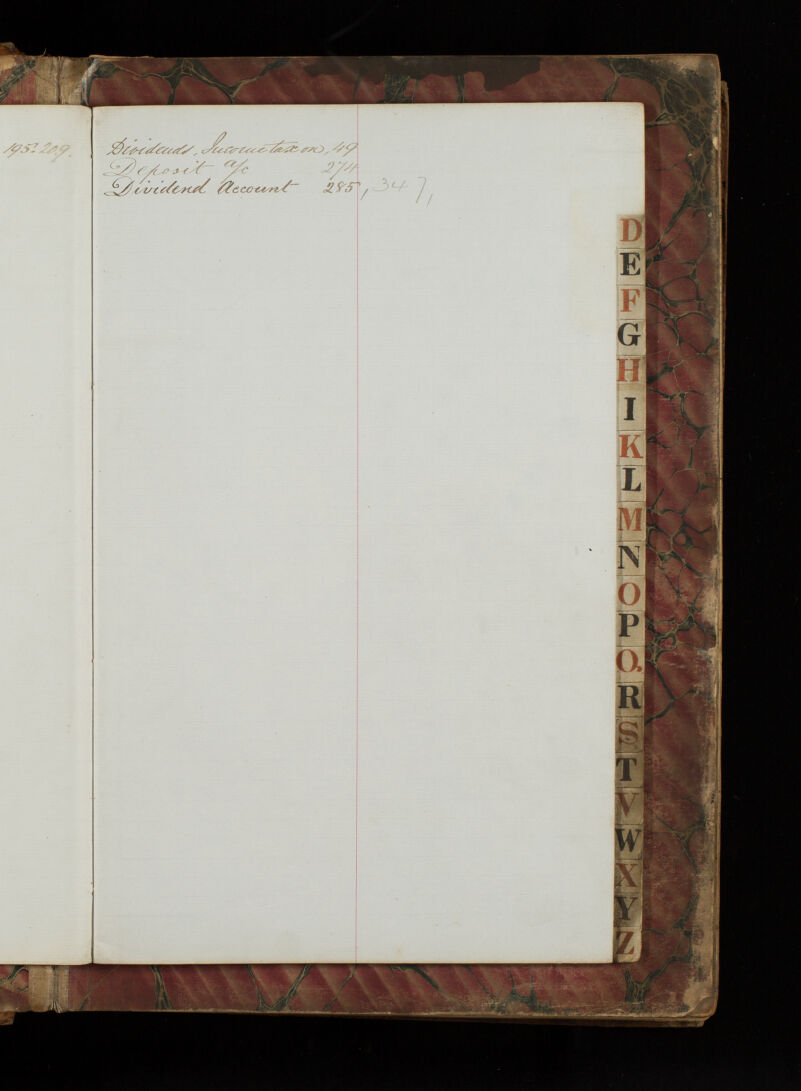 195. 209.
Dividends, Income tax on, 49
Deposit a/c 274
Dividend Account 285, 347,
D
E
F
G
H
I
K
L
M
N
O
P
Q.
R
S
T
V
W
X
Y
Z